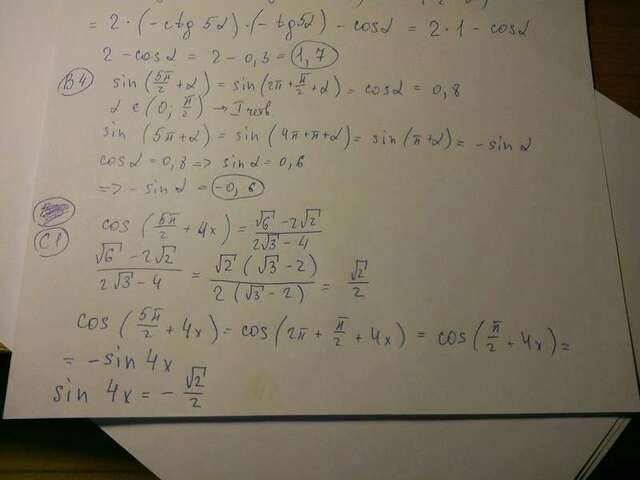 = 2 · (-ctg 5α) · (-tg 5α) - cosα = 2·1 - cosα
2 - cosα = 2 - 0,3 = 1,7
B4 sin(5π/2 + α) = sin(2π + π/2 + α) = cosα = 0,8
α ∈ (0; π/2) → I четв.
sin (5π + α) = sin (4π + π + α) = sin(π + α) = - sin α
cosα = 0,8 => sinα = 0,6
=> - sinα = -0,6
C1 cos (5π/2 + 4x) = (√6 - 2√2)/(2√3 - 4)
(√6 - 2√2)/(2√3 - 4) = (√2 (√3 - 2))/(2 (√3 - 2)) = √2/2
cos (5π/2 + 4x) = cos(2π + π/2 + 4x) = cos(π/2 + 4x) =
= -sin 4x
sin 4x = - √2/2